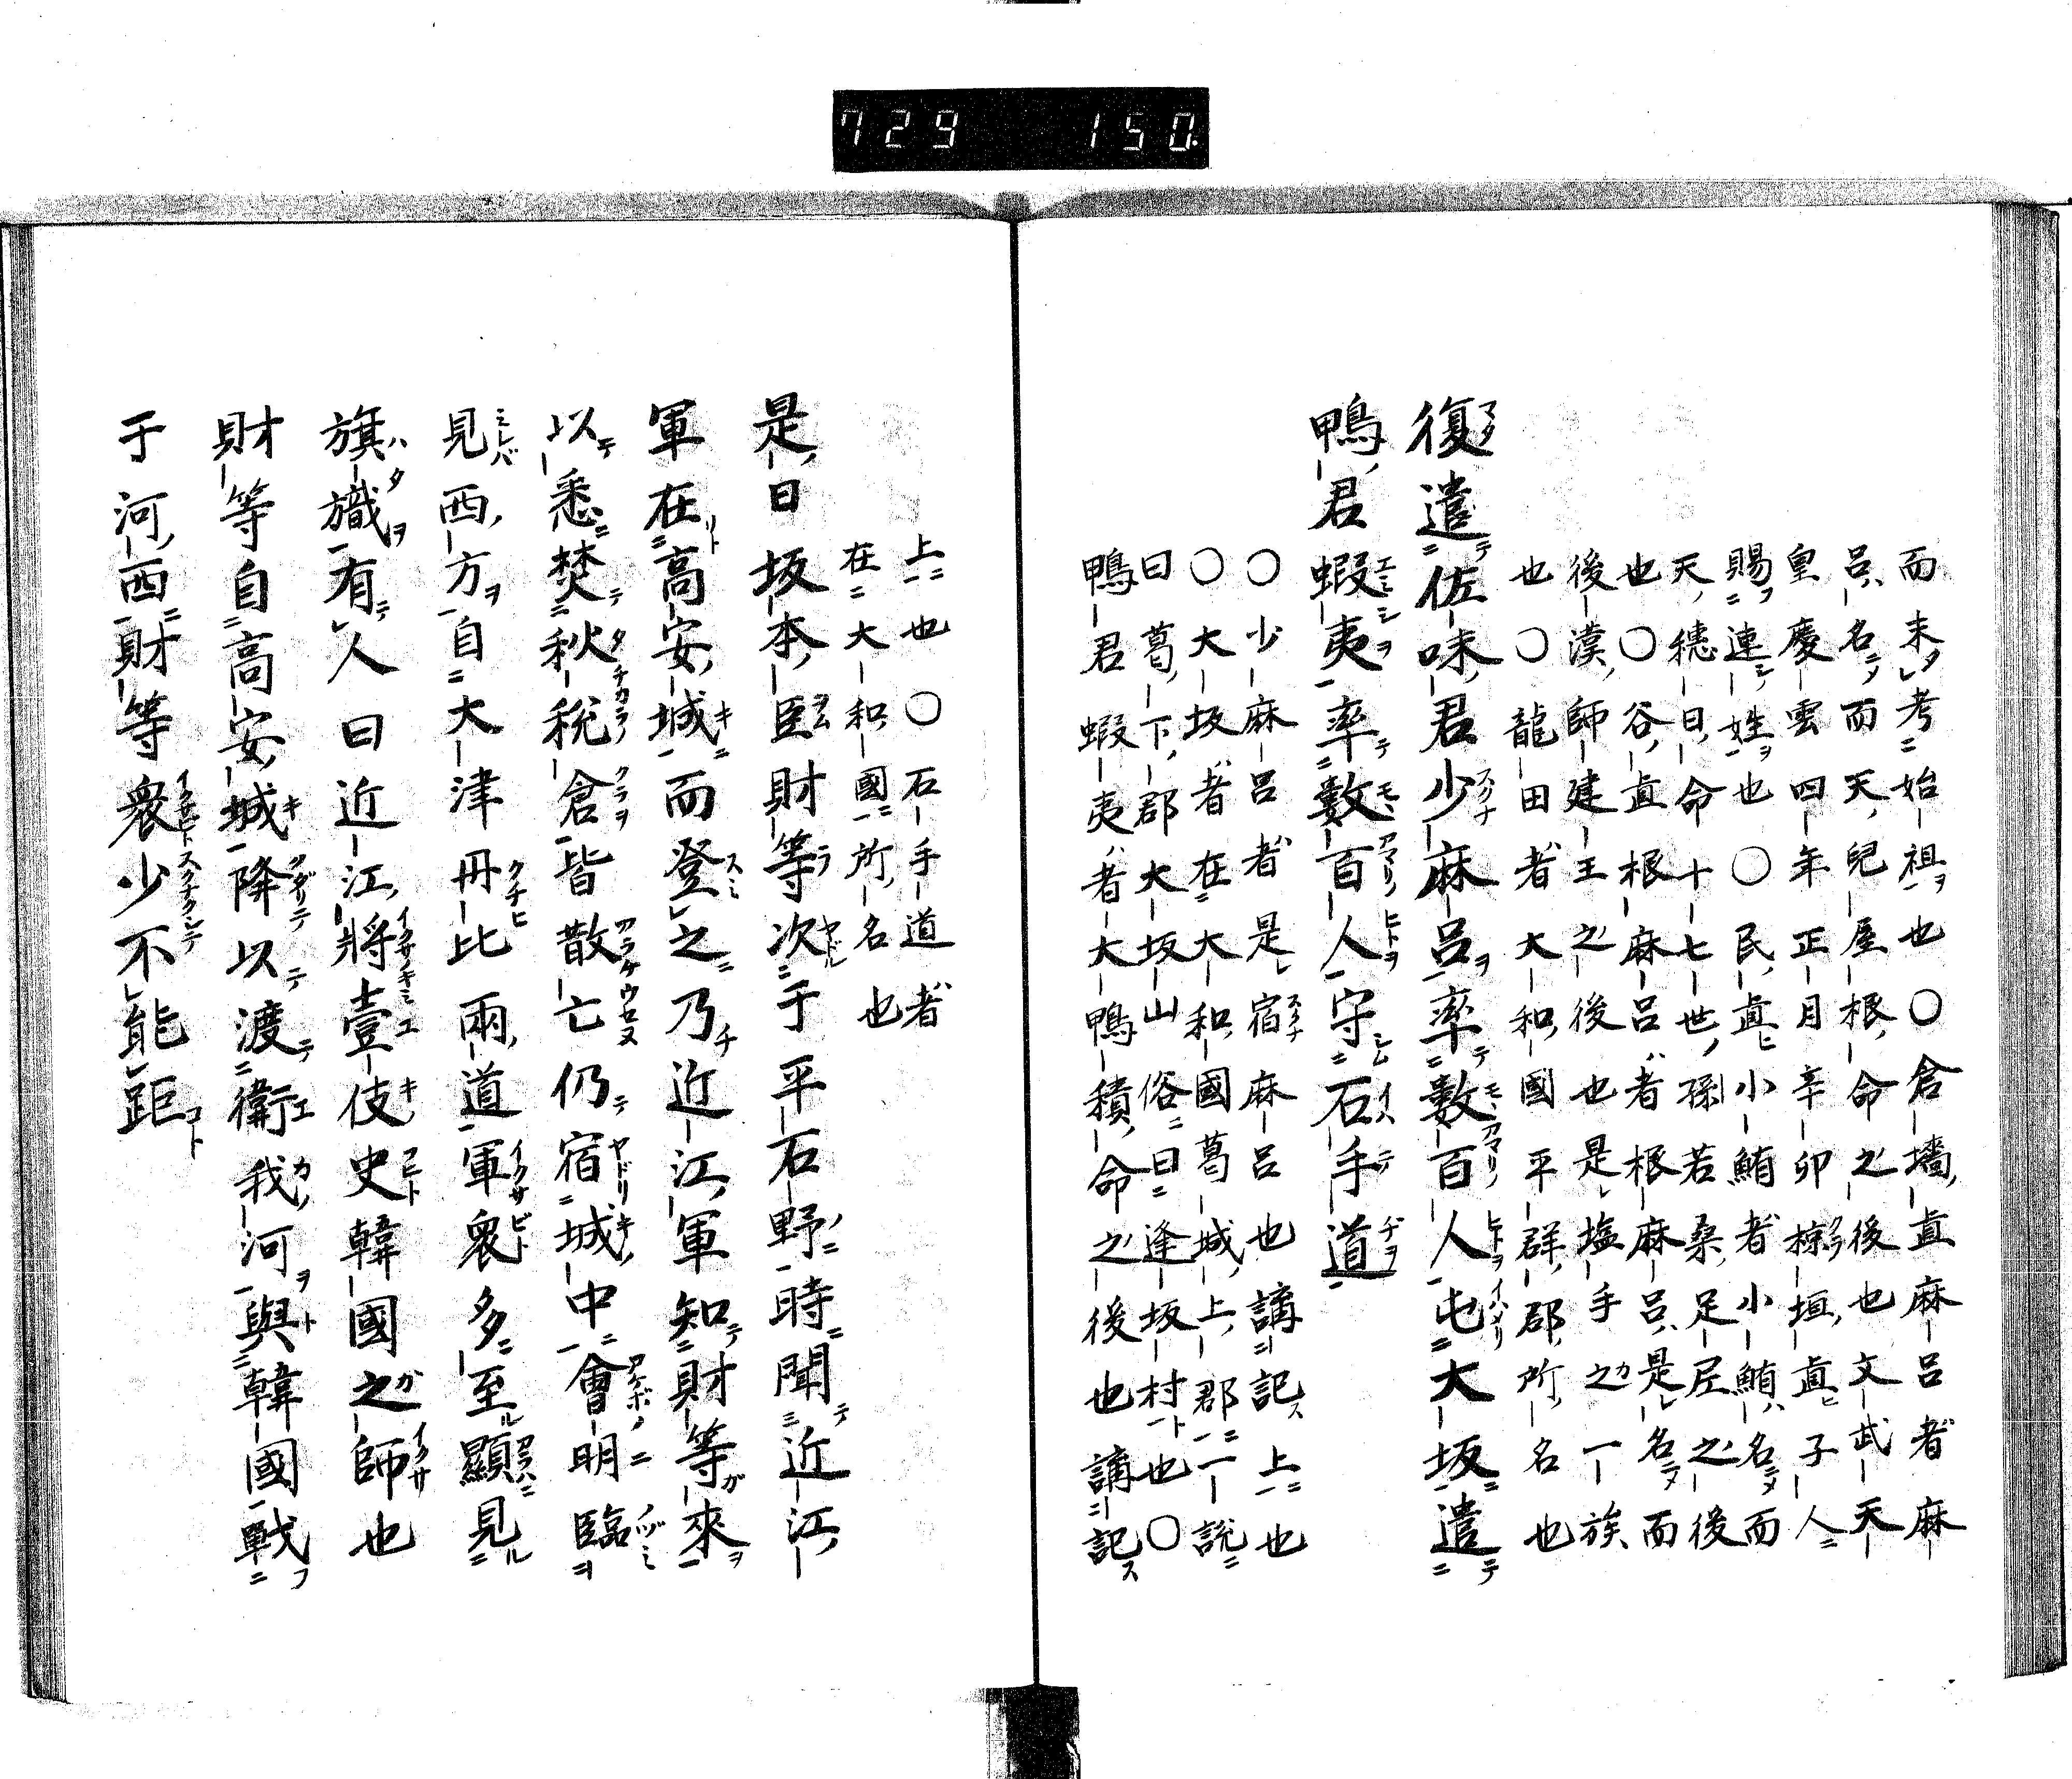 729 150.
而未考始祖也〇倉墻直麻呂者麻
呂名而天兒屋根命之後也文武天
皇慶雲四年正月辛卯椋垣直子人
賜連姓也〇民直小鮪者小鮪名而
天穗日命十七世孫若桑足尼之後
也〇谷直根麻呂者根麻呂是名而
後漢師建王之後也是塩手之一族
也〇龍田者大和國平群郡所名也
復遣佐味君少麻呂率數百人屯大坂遣
鴨君蝦夷率數百人守石手道
〇少麻呂者是宿麻呂也講記上也
〇大坂者在大和國葛城上郡一說
曰葛下郡大坂山俗曰逢坂村也〇
鴨君蝦夷者大鴨積命之後也講記
上也〇石手道者
在大和國所名也
是日坂本臣財等次于平石野時聞近江
軍在高安城而登之乃近江軍知財等來
以悉焚秋稅倉皆散亡仍宿城中會明臨
見西方自大津丹比兩道軍衆多至顯見
旗熾有人曰近江將壹伎史韓國之師也
財等自高安城降以渡衛我河與韓國戰
于河西財等衆少不能距